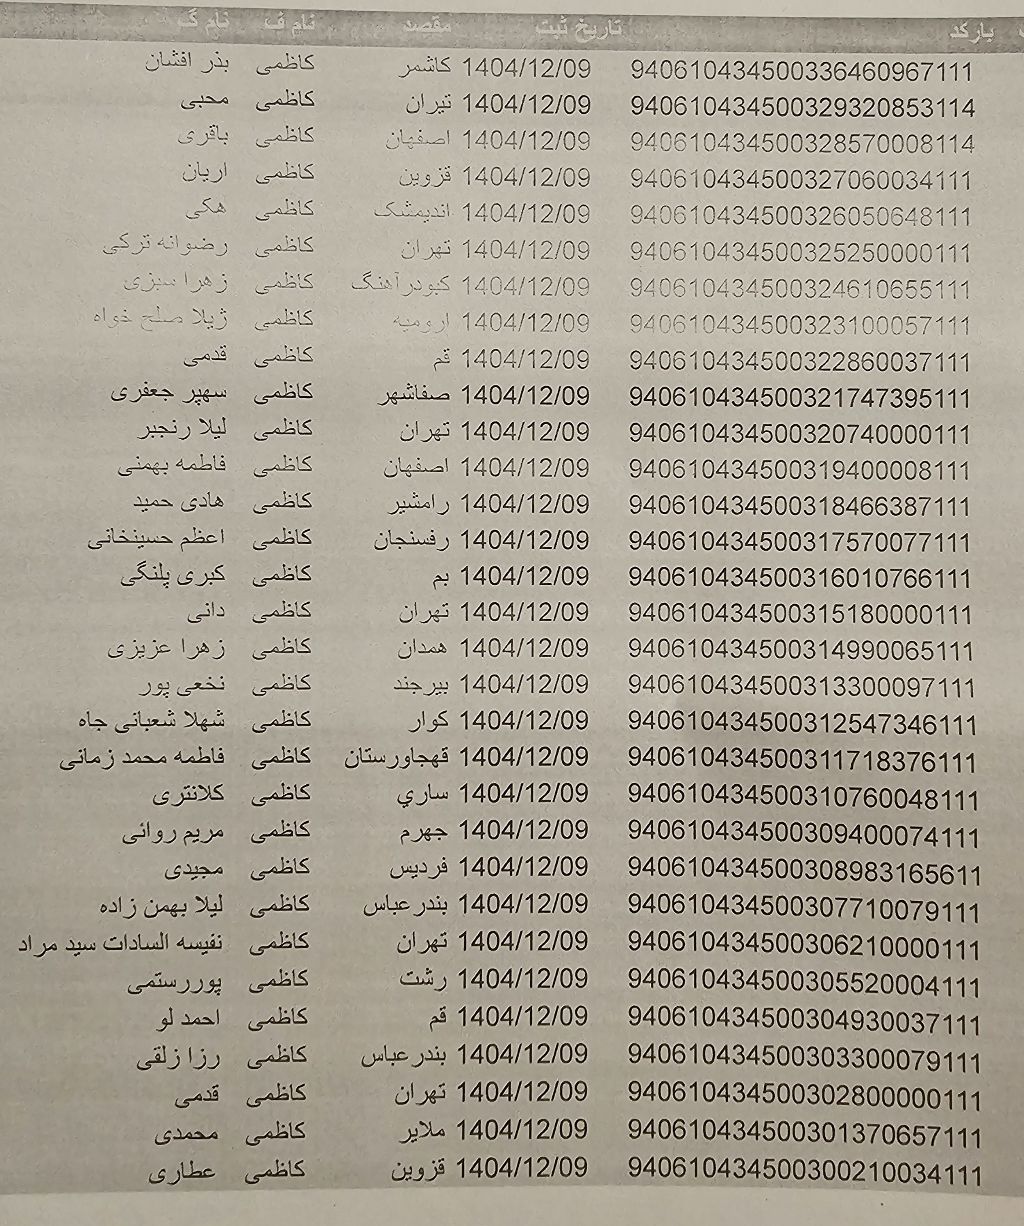 بارکد تاریخ ثبت مقصد نام ف نام گ
940610434500336460967111 1404/12/09 کاشمر کاظمی بذر افشان
940610434500329320853114 1404/12/09 تیران کاظمی محبی
940610434500328570008114 1404/12/09 اصفهان کاظمی باقری
940610434500327060034111 1404/12/09 قزوین کاظمی اریان
940610434500326050648111 1404/12/09 اندیمشک کاظمی هکی
940610434500325250000111 1404/12/09 تهران کاظمی رضوانه ترکی
940610434500324610655111 1404/12/09 کبودرآهنگ کاظمی زهرا سبزی
940610434500323100057111 1404/12/09 ارومیه کاظمی ژیلا صلح خواه
940610434500322860037111 1404/12/09 قم کاظمی قدمی
940610434500321747395111 1404/12/09 صفاشهر کاظمی سهپر جعفری
940610434500320740000111 1404/12/09 تهران کاظمی لیلا رنجبر
940610434500319400008111 1404/12/09 اصفهان کاظمی فاطمه بهمنی
940610434500318466387111 1404/12/09 رامشیر کاظمی هادی حمید
940610434500317570077111 1404/12/09 رفسنجان کاظمی اعظم حسینخانی
940610434500316010766111 1404/12/09 بم کاظمی کبری پلنگی
940610434500315180000111 1404/12/09 تهران کاظمی دانی
940610434500314990065111 1404/12/09 همدان کاظمی زهرا عزیزی
940610434500313300097111 1404/12/09 بیرجند کاظمی نخعی پور
940610434500312547346111 1404/12/09 کوار کاظمی شهلا شعبانی جاه
940610434500311718376111 1404/12/09 قهجاورستان کاظمی فاطمه محمد زمانی
940610434500310760048111 1404/12/09 ساري کاظمی کلانتری
940610434500309400074111 1404/12/09 جهرم کاظمی مریم روائی
940610434500308983165611 1404/12/09 فردیس کاظمی مجیدی
940610434500307710079111 1404/12/09 بندرعباس کاظمی لیلا بهمن زاده
940610434500306210000111 1404/12/09 تهران کاظمی نفیسه السادات سید مراد
940610434500305520004111 1404/12/09 رشت کاظمی پوررستمی
940610434500304930037111 1404/12/09 قم کاظمی احمد لو
940610434500303300079111 1404/12/09 بندرعباس کاظمی رزا زلقی
940610434500302800000111 1404/12/09 تهران کاظمی قدمی
940610434500301370657111 1404/12/09 ملایر کاظمی محمدی
940610434500300210034111 1404/12/09 قزوین کاظمی عطاری